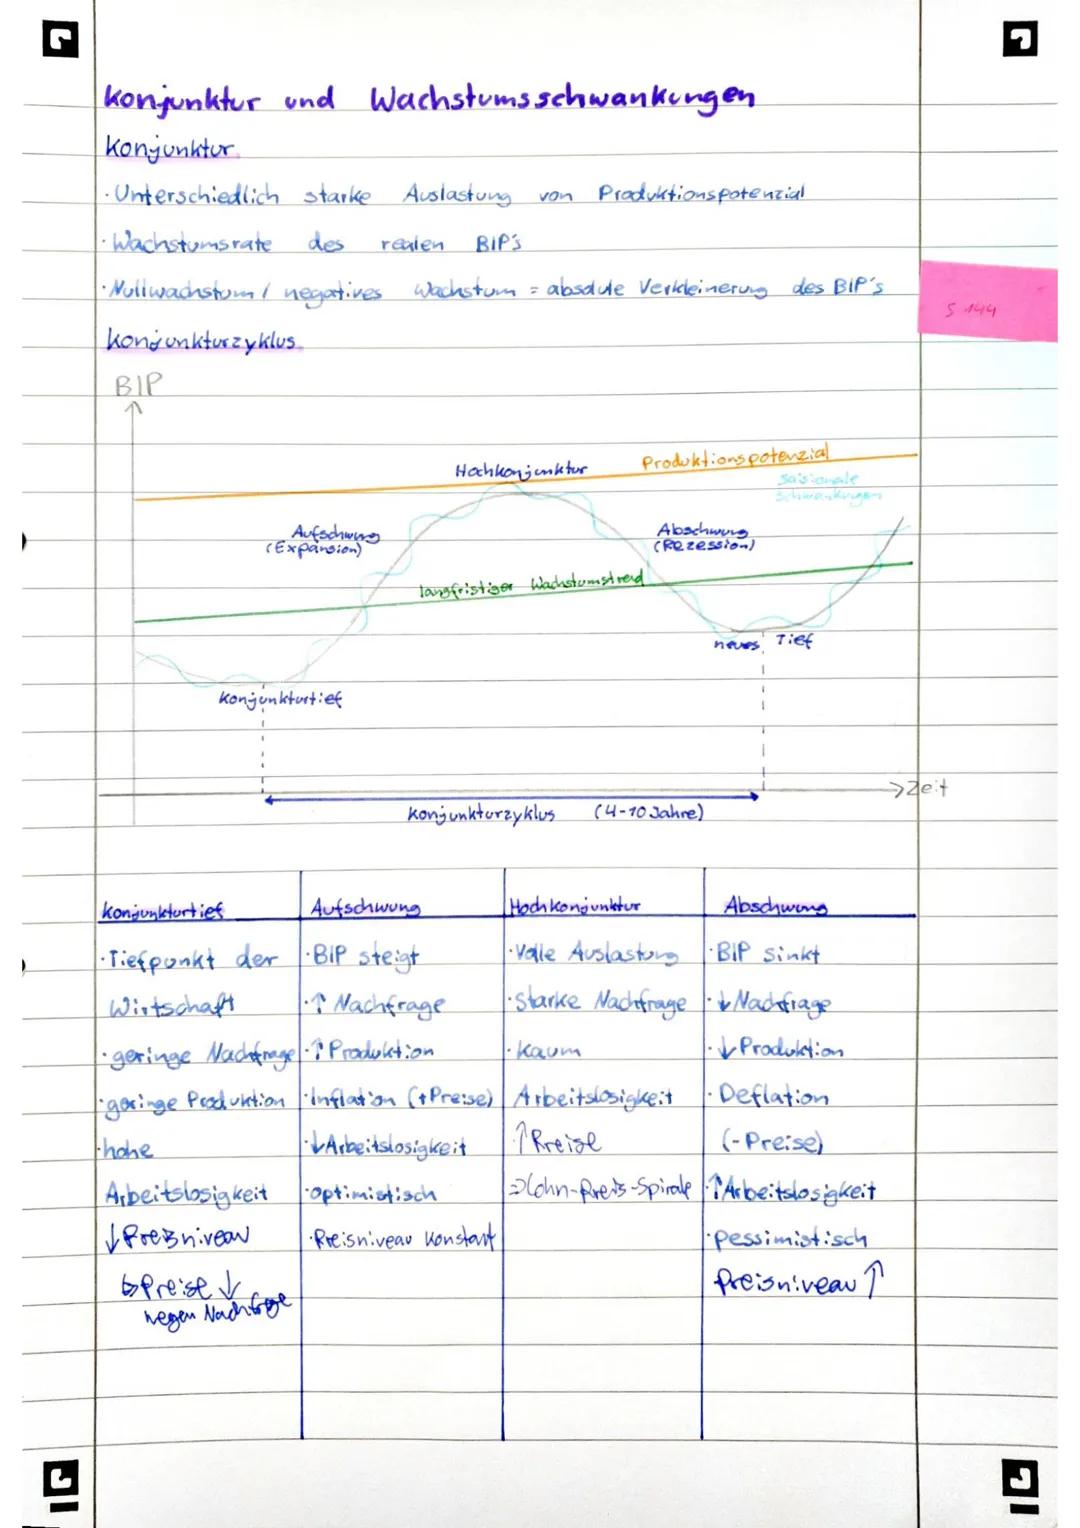 Konjunktur und Wachstumsschwankungen
Konjunktur
· Unterschiedlich starke Auslastung von Produktionspotenzial
· Wachstumsrate des realen BIP's
· Nullwachstum / negatives Wachstum = absolute Verkleinerung des BIP's
S 144
Konjunkturzyklus
BIP
Hochkonjunktur
Produktionspotenzial
saisionale
Schwankungen
Aufschwung
(Expansion)
Abschwung
(Rezession)
langfristiger Wachstumstrend
neues Tief
Konjunkturtief
→Zeit
Konjunkturzyklus (4-10 Jahre)
Konjunkturtief
· Tiefpunkt der
Wirtschaft
· geringe Nachfrage
· geringe Produktion
· hohe
Arbeitslosigkeit
↓ Preisniveau
↳ Preise ↓
wegen Nachfrage
Aufschwung
· BIP steigt
· ↑ Nachfrage
· ↑ Produktion
· Inflation (+Preise)
· ↓ Arbeitslosigkeit
· optimistisch
· Preisniveau konstant
Hochkonjunktur
· Volle Auslastung
· Starke Nachfrage
· Kaum
Arbeitslosigkeit
↑ Preise
⇒ Lohn-Preis-Spirale
Abschwung
· BIP sinkt
· ↓ Nachfrage
· ↓ Produktion
· Deflation
(- Preise)
· ↑ Arbeitslosigkeit
· pessimistisch
Preisniveau ↑